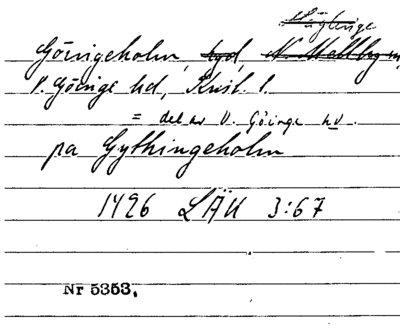 Göingeholm, hgd, N. Mellby sn,
V. Göinge hd, Krist. l.
= del av V. Göinge hd.
pa Gythingeholm
1426 LÄU 3:67
Nr 5353.